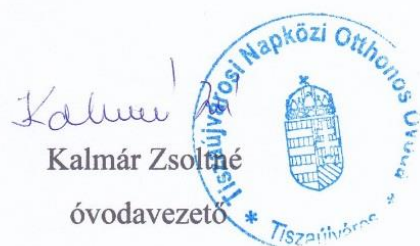 Kalmár Zsoltné
óvodavezető
Tiszaújvárosi Napközi Otthonos Óvoda * Tiszaújváros *